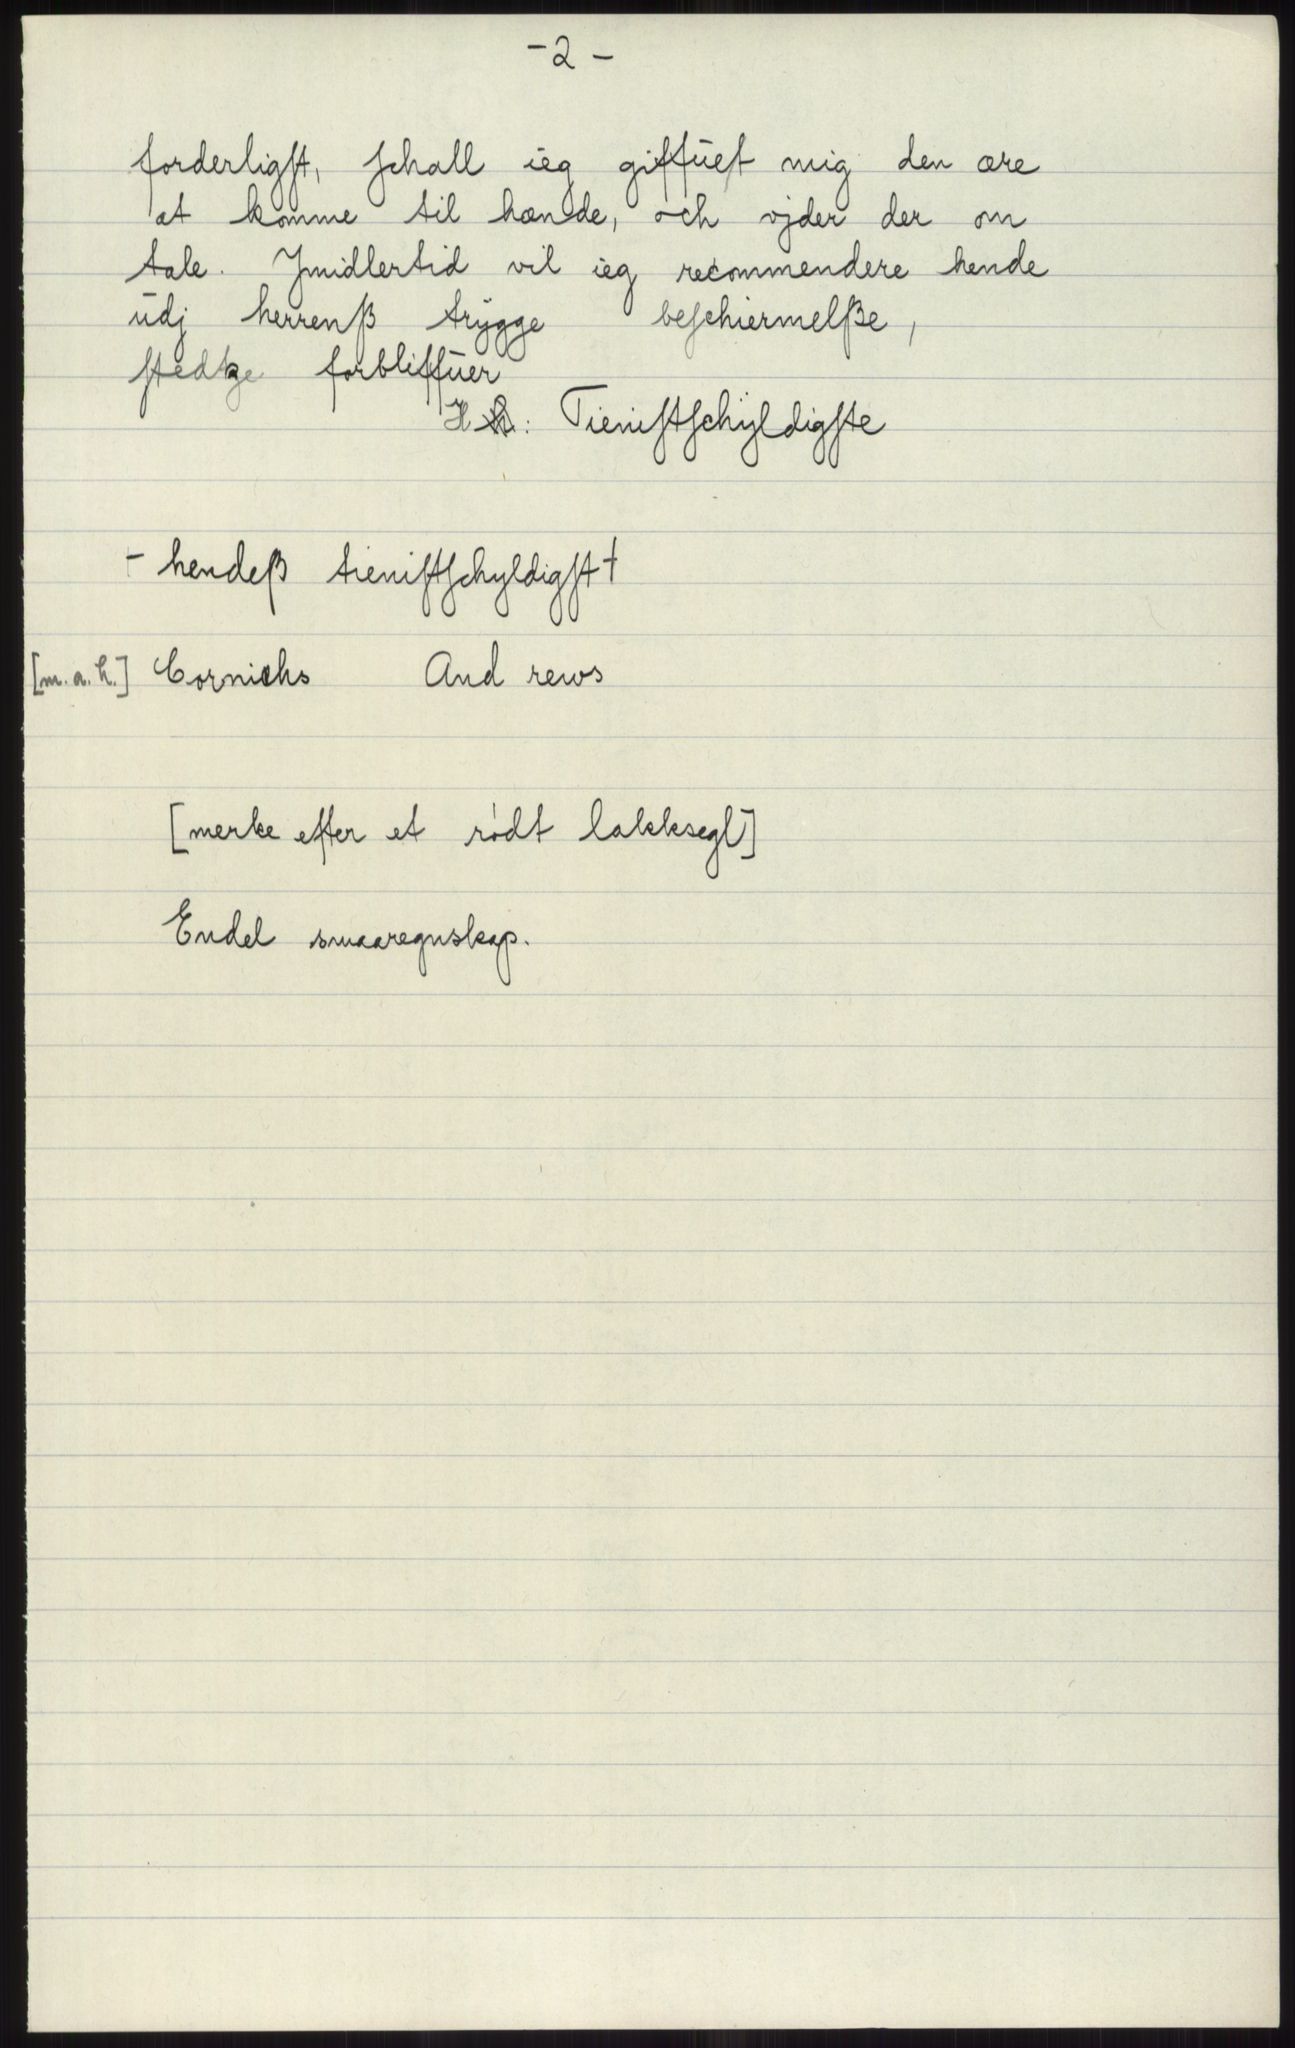 - 2 -
forderligſt, ſchall ieg giffueſt mig den ære
at komme til hænde, och vjder der om
tale. Jmidlertid vil ieg recommendere hende
ŭdj herrenß trÿgge beſchiermelße,
ſtedtze forbliffŭer
H: Tieniſtſchÿldigſte
- hendeß tieniſtſchyldigſt +
[m. a. h.] Cornichs And rews
[merke efter et rødt lakksegl]
Endel smaaregnskap.